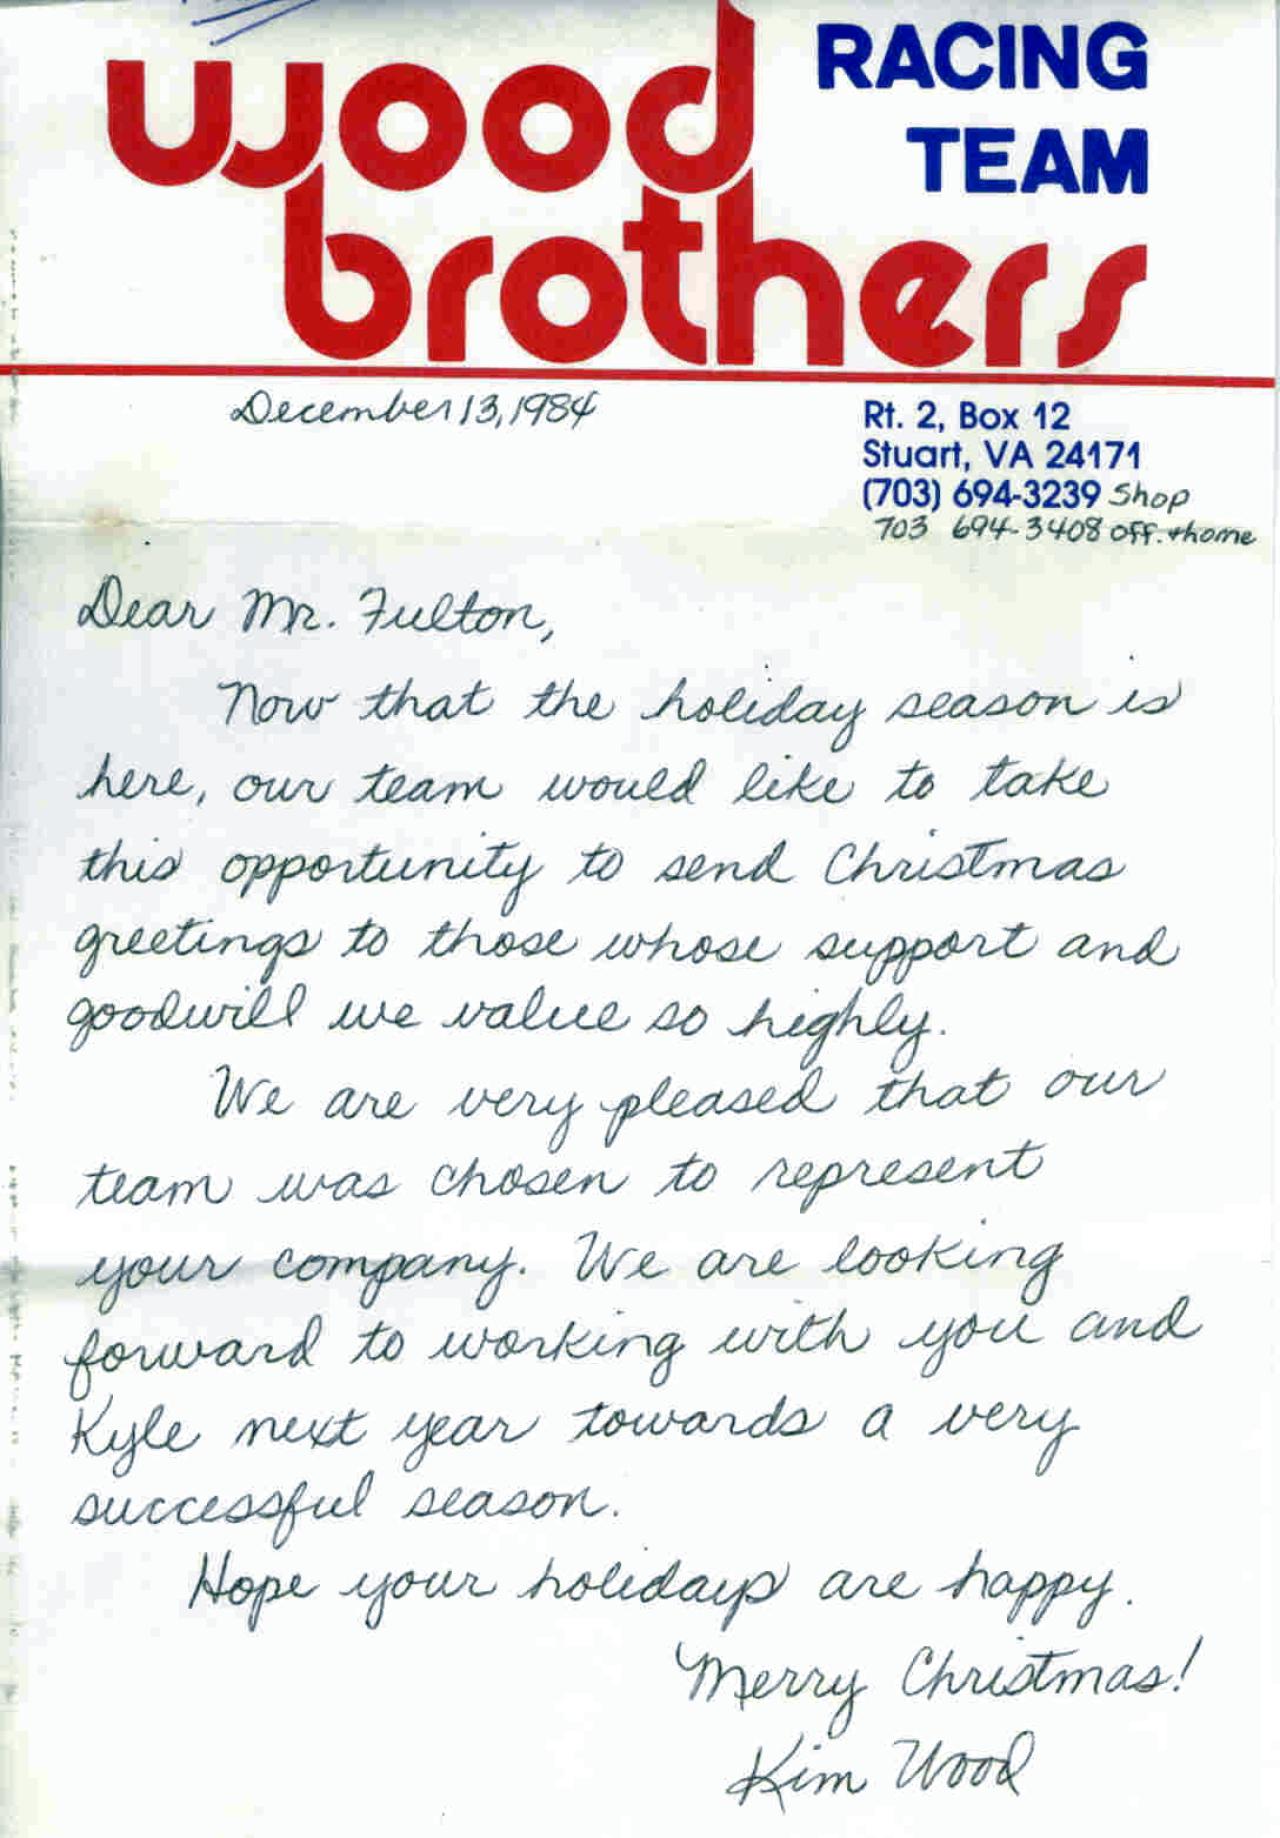 wood
RACING
TEAM
brothers
December 13, 1984
Rt. 2, Box 12
Stuart, VA 24171
(703) 694-3239 Shop
703 694-3408 off. + home
Dear Mr. Fulton,
Now that the holiday season is
here, our team would like to take
this opportunity to send Christmas
greetings to those whose support and
goodwill we value so highly.
We are very pleased that our
team was chosen to represent
your company. We are looking
forward to working with you and
Kyle next year towards a very
successful season.
Hope your holidays are happy.
Merry Christmas!
Kim Wood